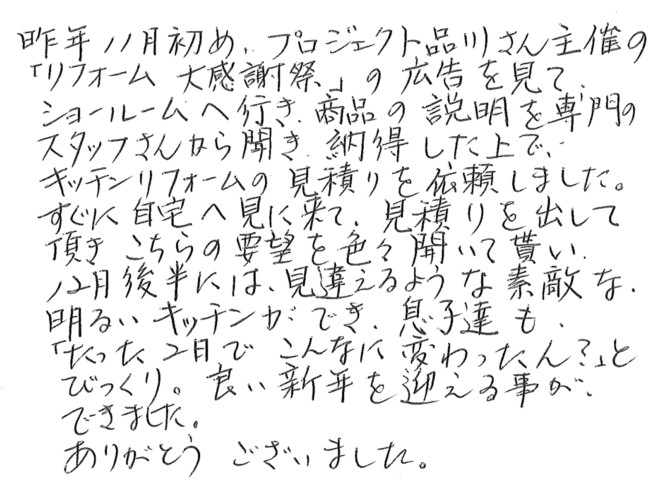 昨年11月初め、プロジェクト品川さん主催の
「リフォーム 大感謝祭」の広告を見て、
ショールームへ行き、商品の説明を専門の
スタッフさんから聞き、納得した上で、
キッチンリフォームの見積りを依頼しました。
すぐに自宅へ見に来て、見積りを出して
頂き こちらの要望を色々聞いて貰い、
12月後半には、見違えるような素敵な、
明るいキッチンができ、息子達も、
「たった2月でこんなに変わったん?」と
びっくり。良い新年を迎える事が、
できました。
ありがとう ございました。